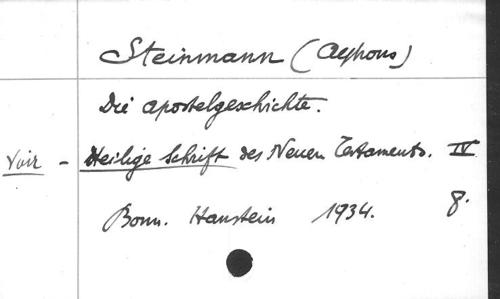 Steinmann (Alphons)
Die Apostelgeschichte.
Voir - Heilige Schrift des Neuen Testaments. IV
Bonn. Hanstein 1934. 8.